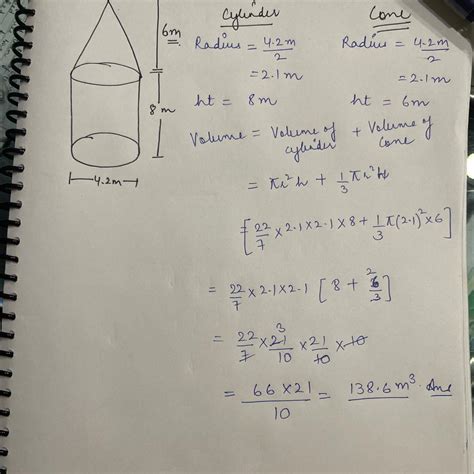 6m
8m
4.2m
Cylinder Cone
Radius = 4.2m/2 Radius = 4.2m/2
= 2.1m = 2.1m
ht = 8m ht = 6m
Volume = Volume of cylinder + Volume of cone
= πr²h + 1/3 πr²H
[22/7 × 2.1 × 2.1 × 8 + 1/3 π(2.1)² × 6]
= 22/7 × 2.1 × 2.1 [8 + 6/3] 2
= 22/7 × 21/10 × 21/10 × 10 3
= 66 × 21/10 = 138.6 m³. Ans